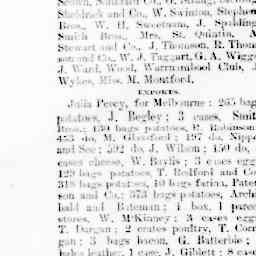 Shaddock and Co., W. Swinton, Stephen
Bros., W. H. Sweetnam, J. Spalding
Smith Bros., Mrs. St. Quintin, A.
Stewart and Co., J. Thomson, R. Thom
son and Co., W. J. Taggart, G. A. Wigg
J. Ward, Wood, Warrnambool Club, J
Wykes, Miss. M. Montford.
EXPORTS.
Julia Percy, for Melbourne : 265 bag
potatoes, J. Begley ; 3 cases, Smit
Bros.; 130 bags potatoes, R. Robinson
453 do, M. 197 do, Nipp
and See ; 592 do, J. Wilson ; 150 do,
cases cheese, W. Bayles ; 3 cases eggs
129 bags potatoes, T. Redford and Co
318 bags potatoes, 10 bags farina, Pater
son and Co.; 373 bags potatoes, Arch
bald and Bateman ; 1 box, 1 parce
stores, W. McKinney ; 3 cases eggs
T. Dargan ; 2 crates poultry, T. Cor
gan ; 3 bags bacon, G. Batterbie ;
bales leather, 1 case, J. Giblett ; 8 cases